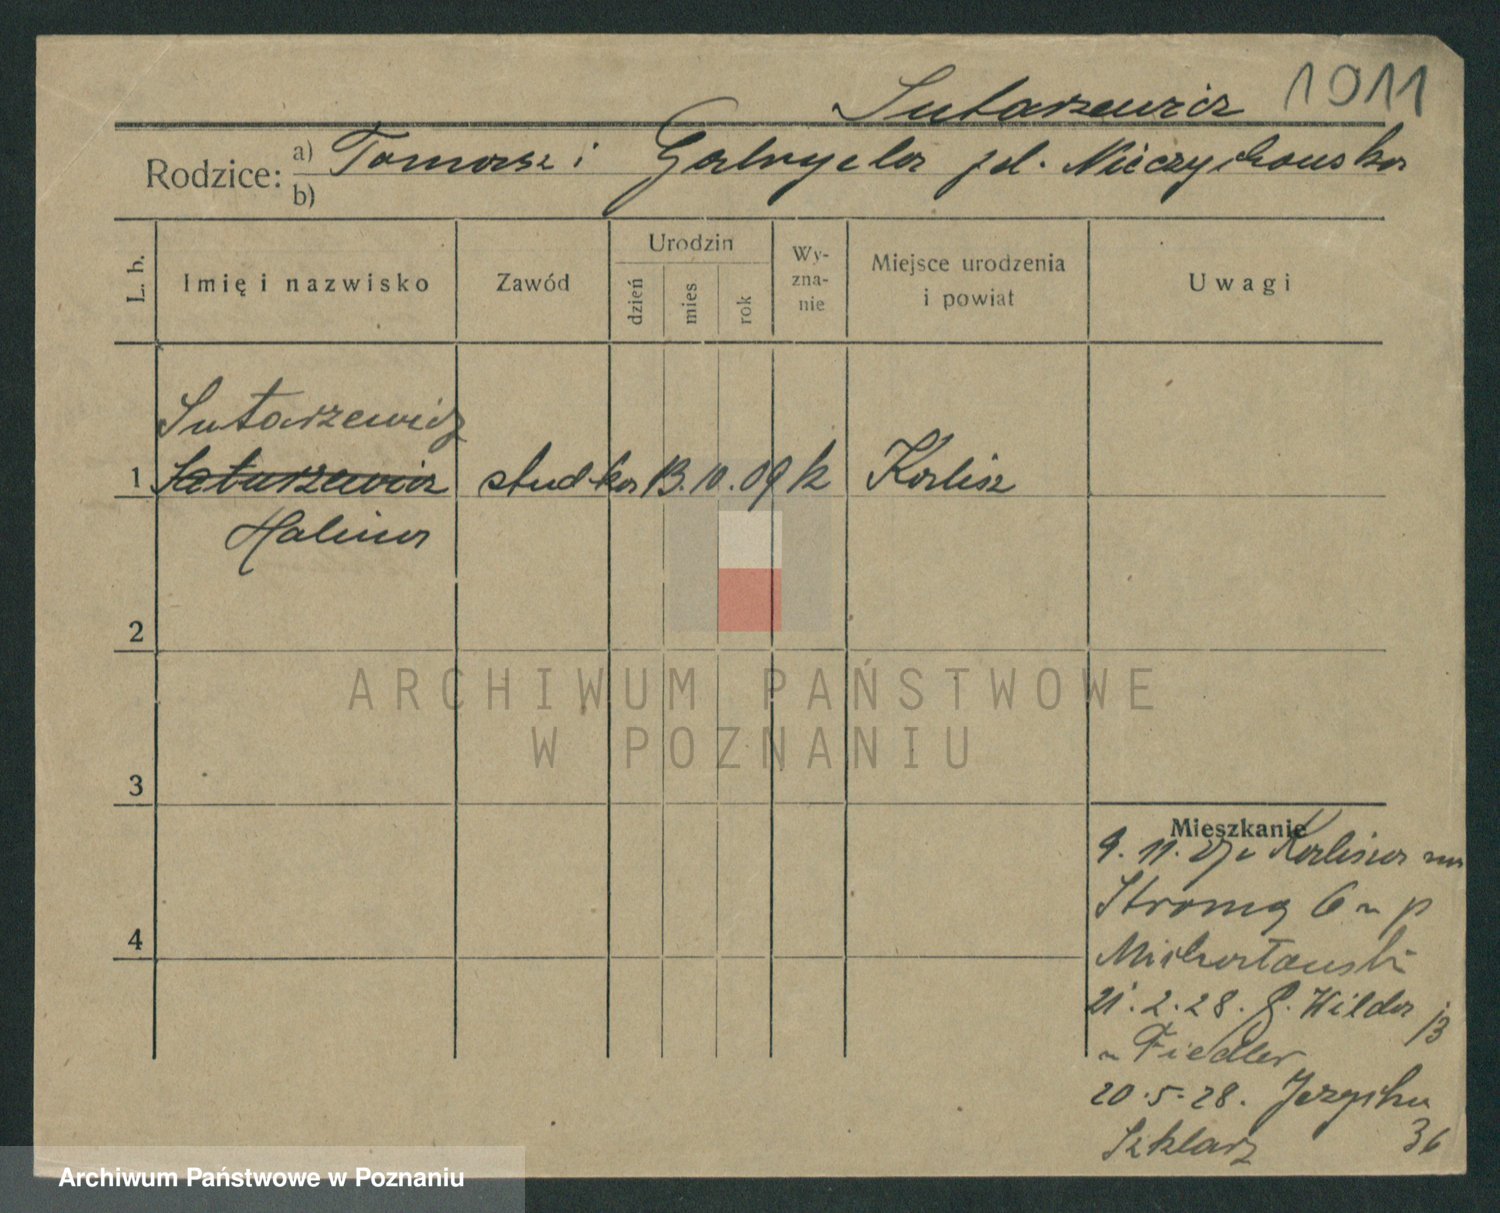 1911
Sutarzewicz
Rodzice: a) Tomasz i Gabryela zd. Niczychowska
b)
L. b.
Imię i nazwisko
Zawód
Urodzin
dzień
mies
rok
Wy-
zna-
nie
Miejsce urodzenia
i powiat
Uwagi
Sutarzewicz
1 Saturzewicz stud-ka 13. 10. 09 k Kalisz
Halina
2
3
4
Mieszkanie
9. 11. 27 z Kalisza na
Stroma 6 u p
21. 2. 28. G. Wilda 13
u Fiedler
20. 5. 28. Jeżycka
Szklarz 36
ARCHIWUM PAŃSTWOWE
W POZNANIU
Archiwum Państwowe w Poznaniu